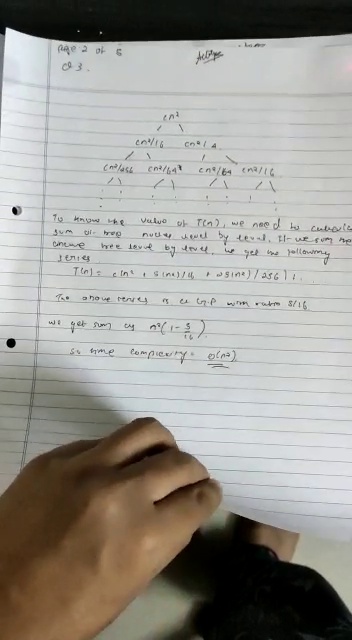 Page 2 of 5
Q3.
cn²
cn²/16 cn²/4
cn²/256 cn²/64 cn²/64 cn²/16
To know the value of T(n), we need to calculate
sum of tree nodes level by level. If we sum the
above tree level by level, we get the following
series
T(n) = c(n² + 5(n²)/16 + 25(n²)/256) + .
The above series is a G.P with ratio 5/16
we get sum as n²(1 - 5/16)
So time complexity = O(n²)